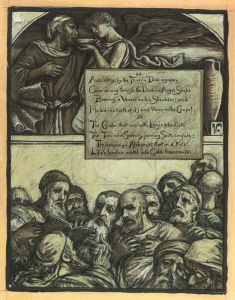 And lately, by the Tavern Door agape,
Came shining through the Dusk an Angel Shape
Bearing a Vessel on his Shoulder; and
He bid me taste of it; and 'twas the Grape!
The Grape that can with Logic absolute
The Two-and-Seventy jarring Sects confute:
The sovereign Alchemist that in a trice
Life's leaden metal into Gold transmute